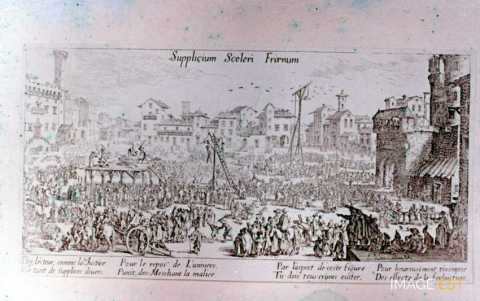 Supplicium Sceleri Frœnum
Voy lecteur, comme la Justice
Par tant de supplices divers,
Pour le repos de l'univers,
Punit des Meschant la malice.
Par l'aspect de ceste figure
Tu dois tous crimes eviter,
Pour heureusement
Des effects de la
IMAGE'EST